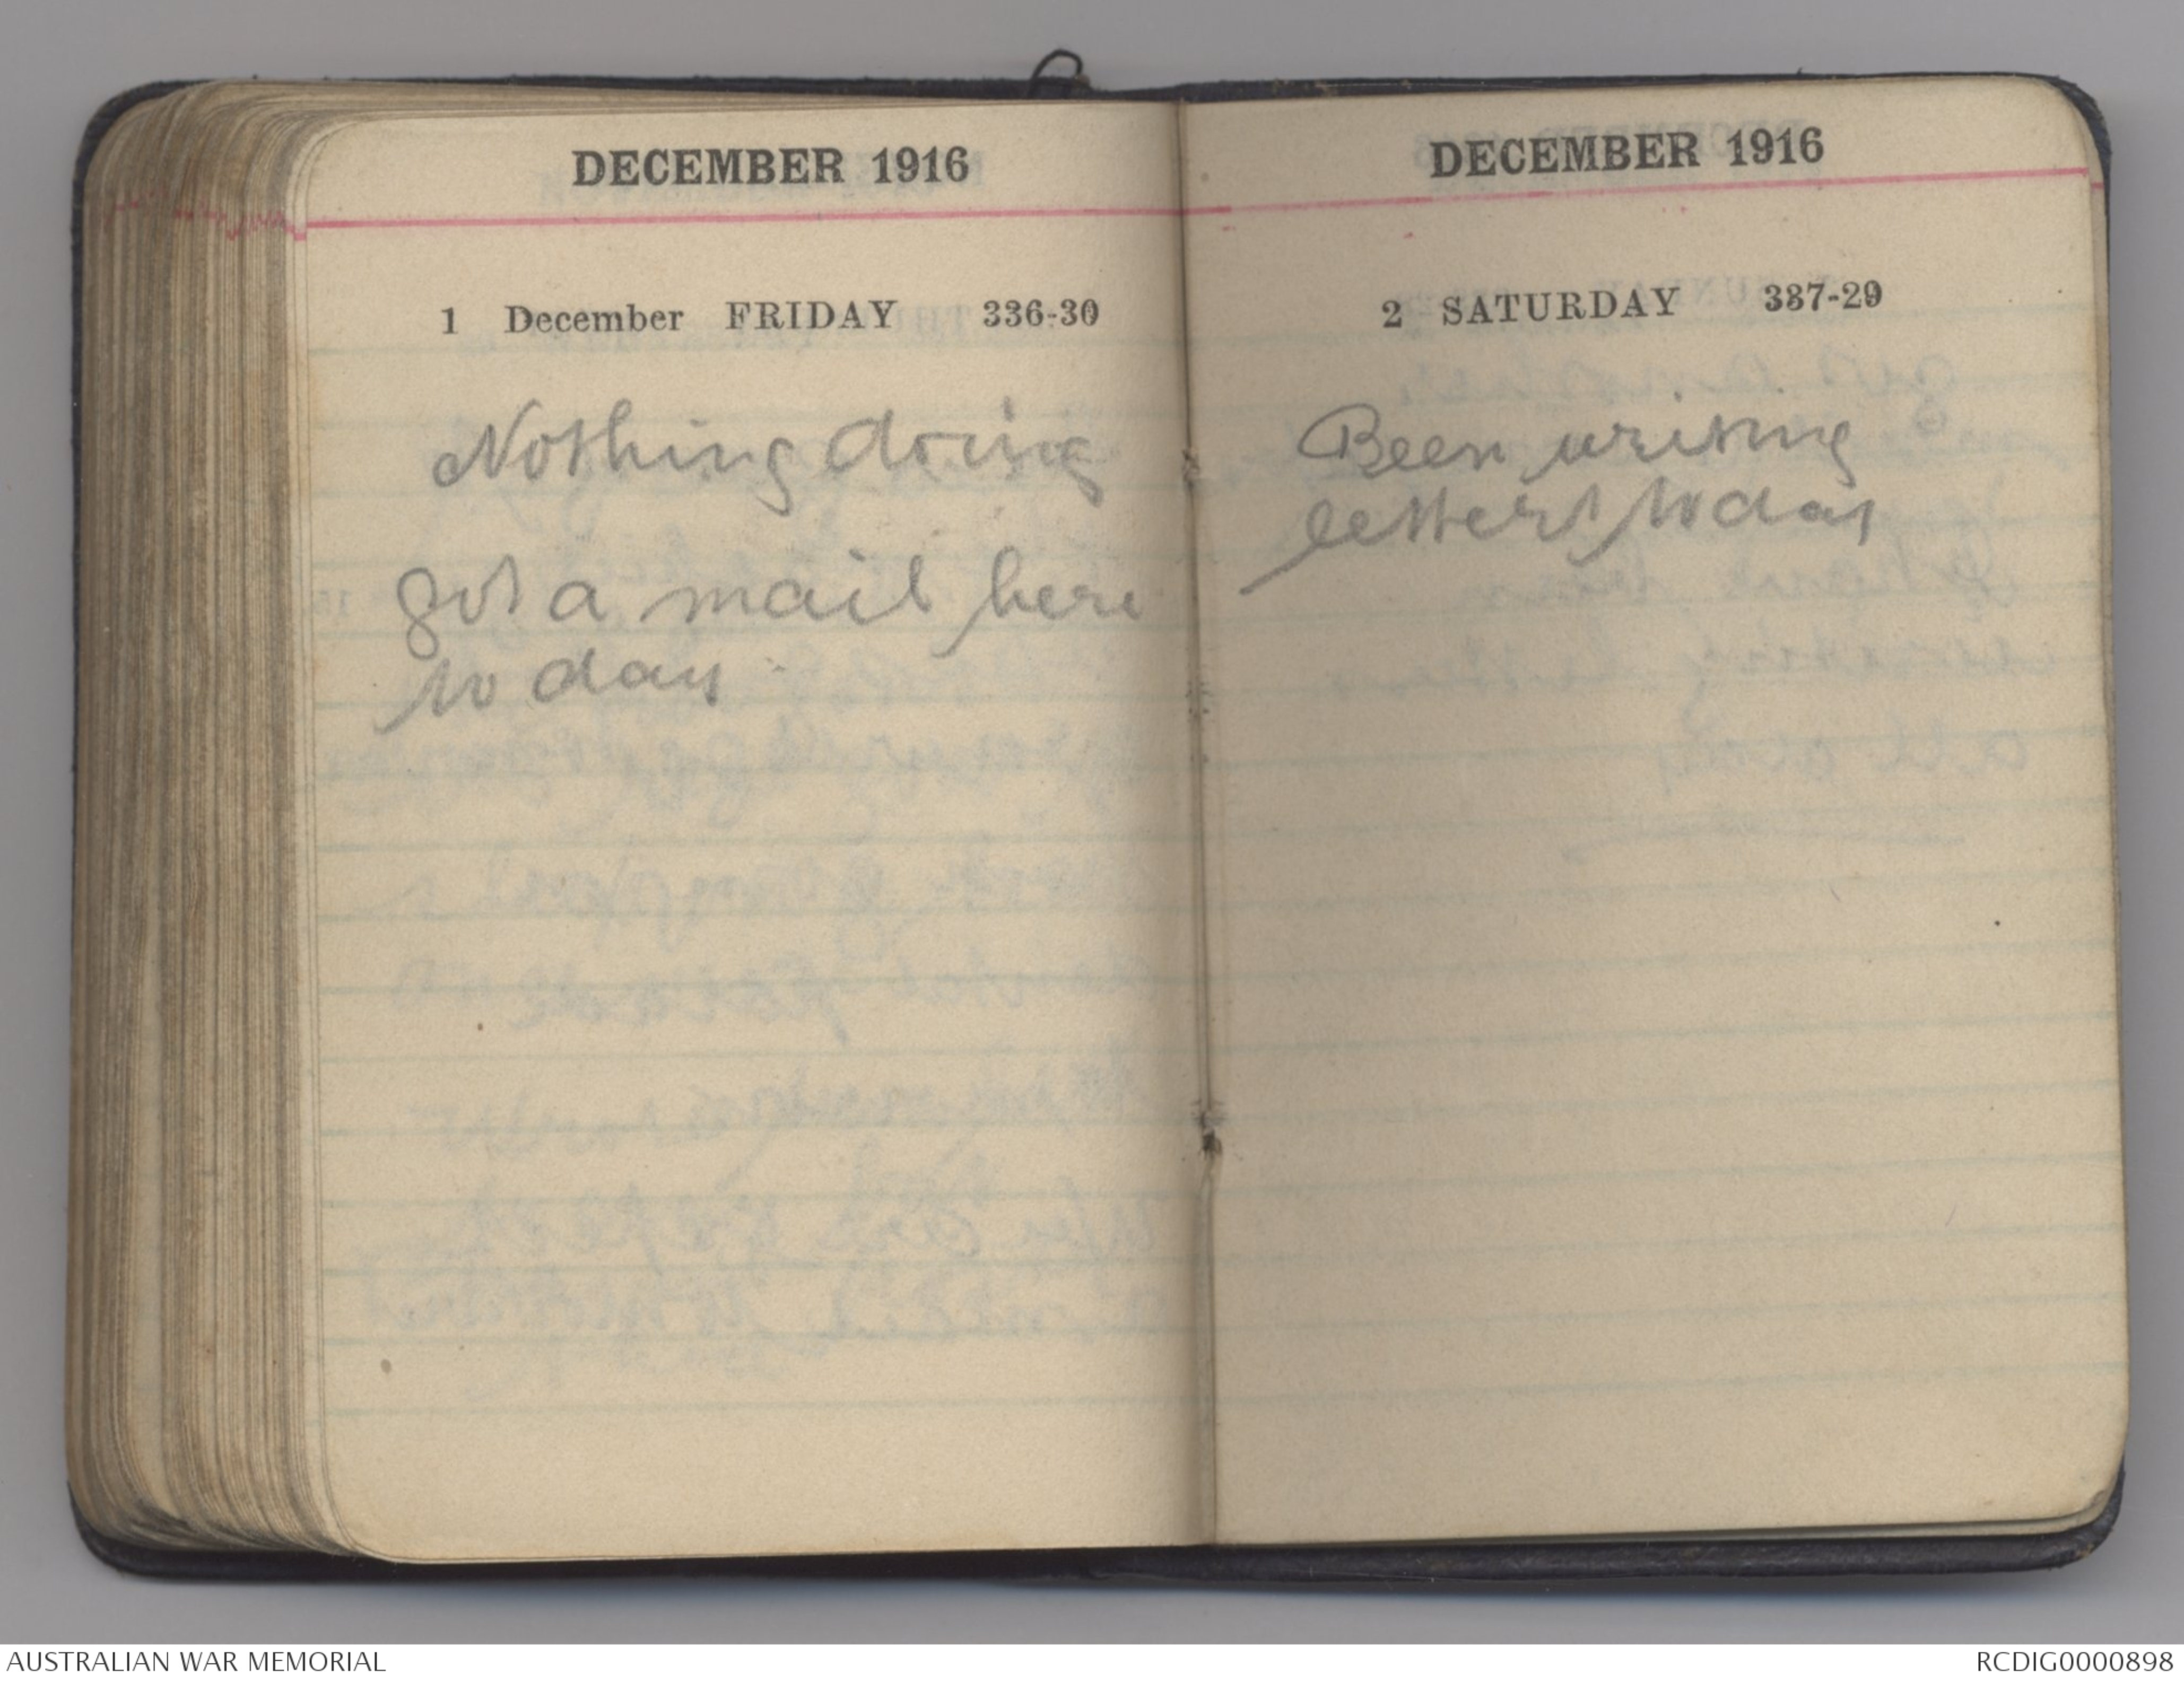 DECEMBER 1916
1 December FRIDAY 336-30
Nothing doing
got a mail here
to day
DECEMBER 1916
2 SATURDAY 337-29
Been writing
letters to day
AUSTRALIAN WAR MEMORIAL
RCDIG0000898